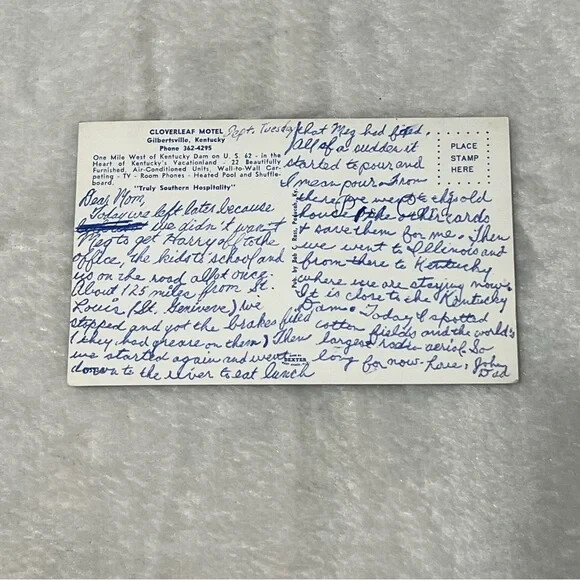 CLOVERLEAF MOTEL
Gilbertsville, Kentucky
Phone 362-4295
One Mile West of Kentucky Dam on U. S. 62 - in the
Heart of Kentucky's Vacationland - 22 Beautifully
Furnished, Air-Conditioned Units, Wall-to-Wall Car-
peting - TV - Room Phones - Heated Pool and Shuffle-
board.
"Truly Southern Hospitality"
Sept. Tuesday
Dear Mom,
Today we left later because
we didn't want
Meg to get Harry off to the
office, the kids to school and
us on the road all at once.
About 125 miles from St.
Louis (St. Genivere) we
stopped and got the brakes filed
(they had grease on them) Then
we started again and went
down to the river to eat lunch
that Meg had fixed.
All of a sudden it
started to pour and
I mean pour. From
there we went to this old
house. the other cards
& save them for me. Then
we went to Illinois and
from there to Kentucky
where we are staying now.
It is close to the Kentucky
Dam. Today I spotted
cotton fields and the world's
largest radio aerial. So
long for now. Love, John
Dad
PLACE
STAMP
HERE
DEXTER